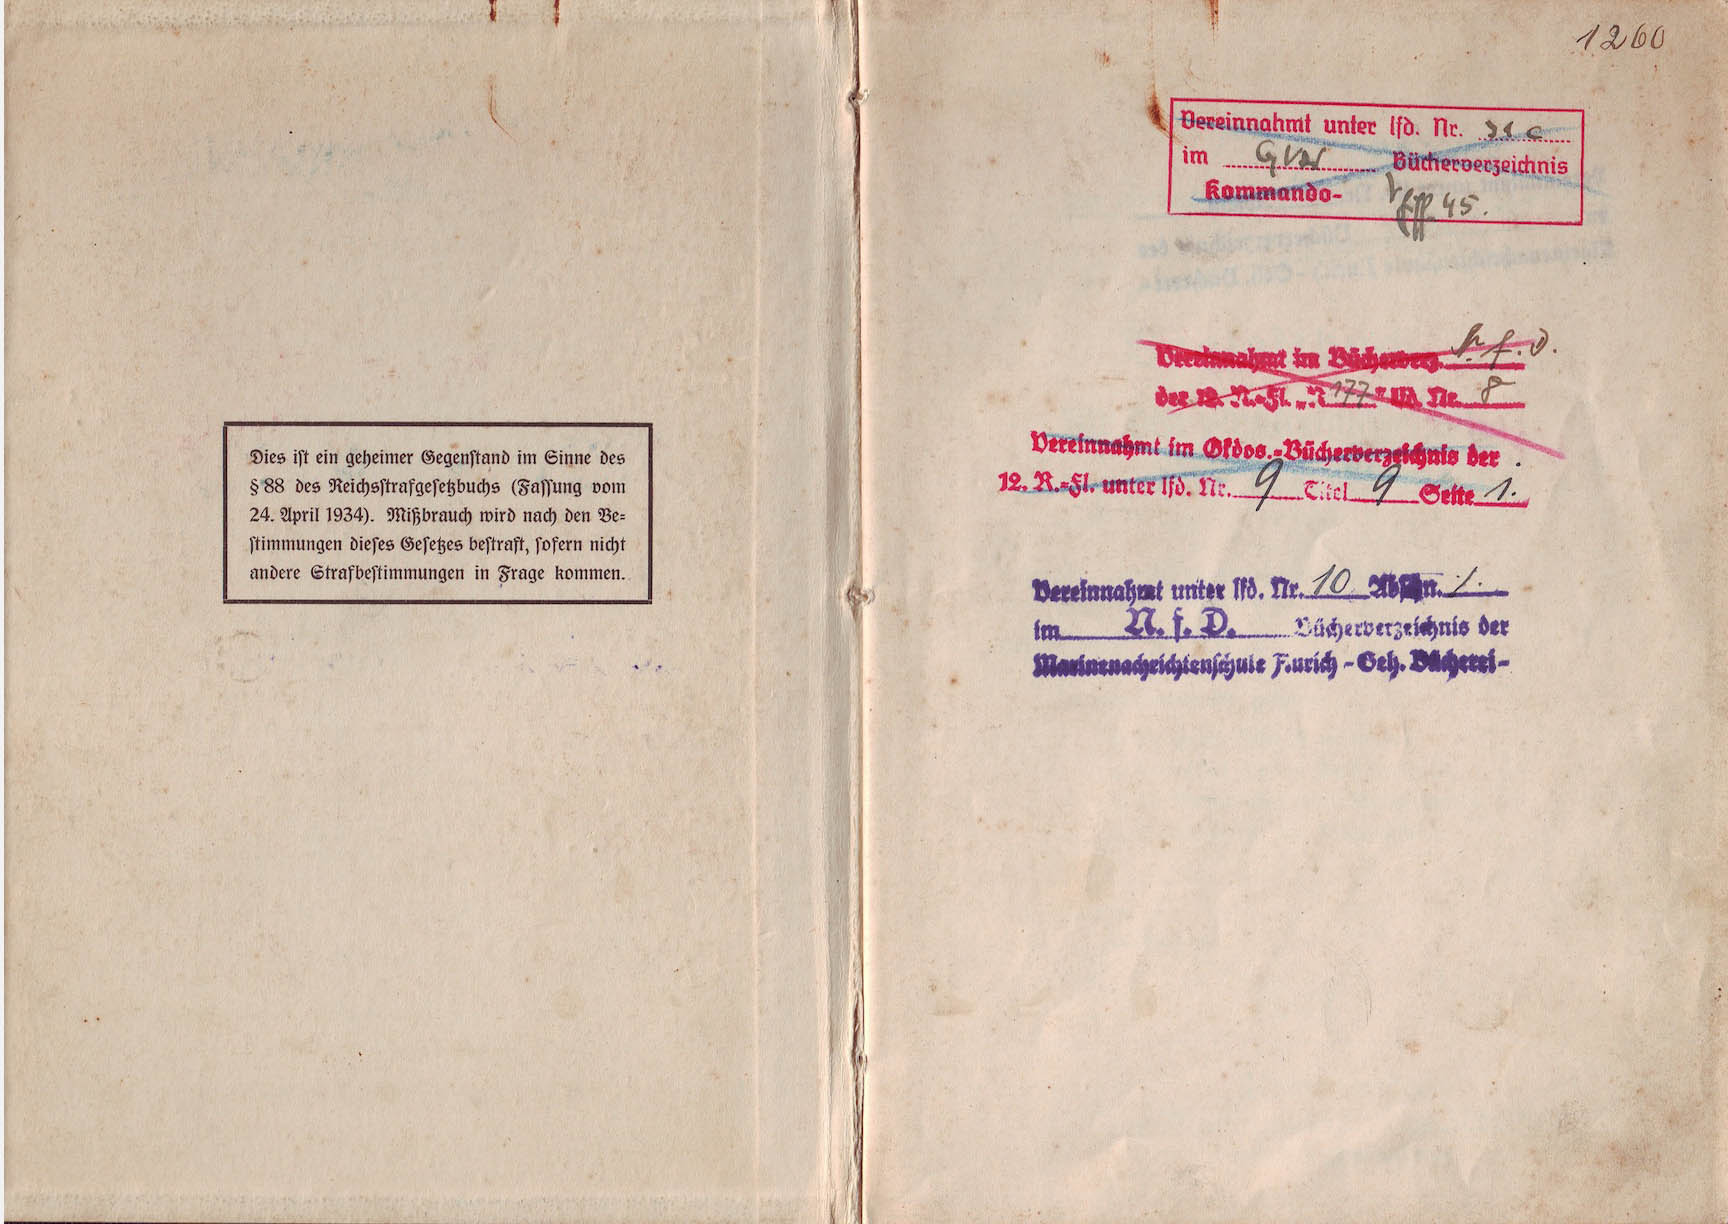 Dies ist ein geheimer Gegenstand im Sinne des
§ 88 des Reichsstrafgesetzbuchs (Fassung vom
24. April 1934). Mißbrauch wird nach den Be=
stimmungen dieses Gesetzes bestraft, sofern nicht
andere Strafbestimmungen in Frage kommen.
1260
Vereinnahmt unter lfd. Nr.
im Bücherverzeichnis
Kommando-
45.
Vereinnahmt im Bücherverz. N. f. D.
der 12. R.-Fl. „R 177" lfd. Nr. 8
Vereinnahmt im Gkdos.-Bücherverzeichnis der
12. R.-Fl. unter lfd. Nr. 9 Titel 9 Seite 1.
Vereinnahmt unter lfd. Nr. 10 Abschn. 1.
im N. f. D. Bücherverzeichnis der
Marinenachrichtenschule - Geh. Bücherei -